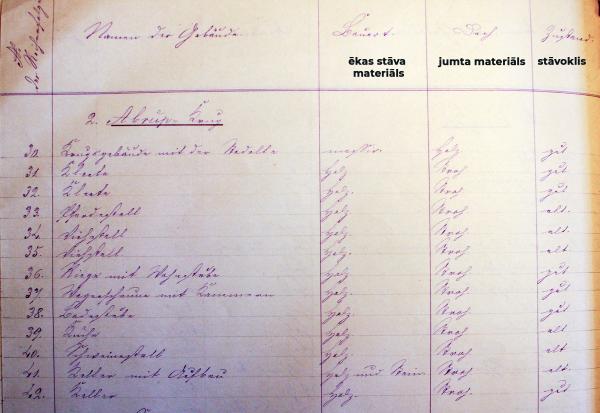 № der Reihenfolge
Namen der Gebäude. Bauart. Dach Zustand.
ēkas stāva materiāls jumta materiāls stāvoklis
2. Abrup Krug
30. Krugsgebäude mit der Stadolle massiv. Holz gut
31. Kleete Holz. Stroh gut
32. Kleete Holz. Stroh gut
33. Pferdestall Holz. Stroh alt.
34. Viehstall Holz. Stroh alt.
35. Viehstall Holz. Stroh alt
36. Riege mit Wohnstube Holz. Stroh gut
37. Wagenscheune mit Kammern Holz. Stroh gut
38. Badestube Holz. Stroh gut
39. Küche Holz. Stroh alt
40. Schweinestall Holz. Stroh alt
41. Keller mit Aufbau Holz und Stein. Stroh. alt
42. Keller Holz. Stroh gut